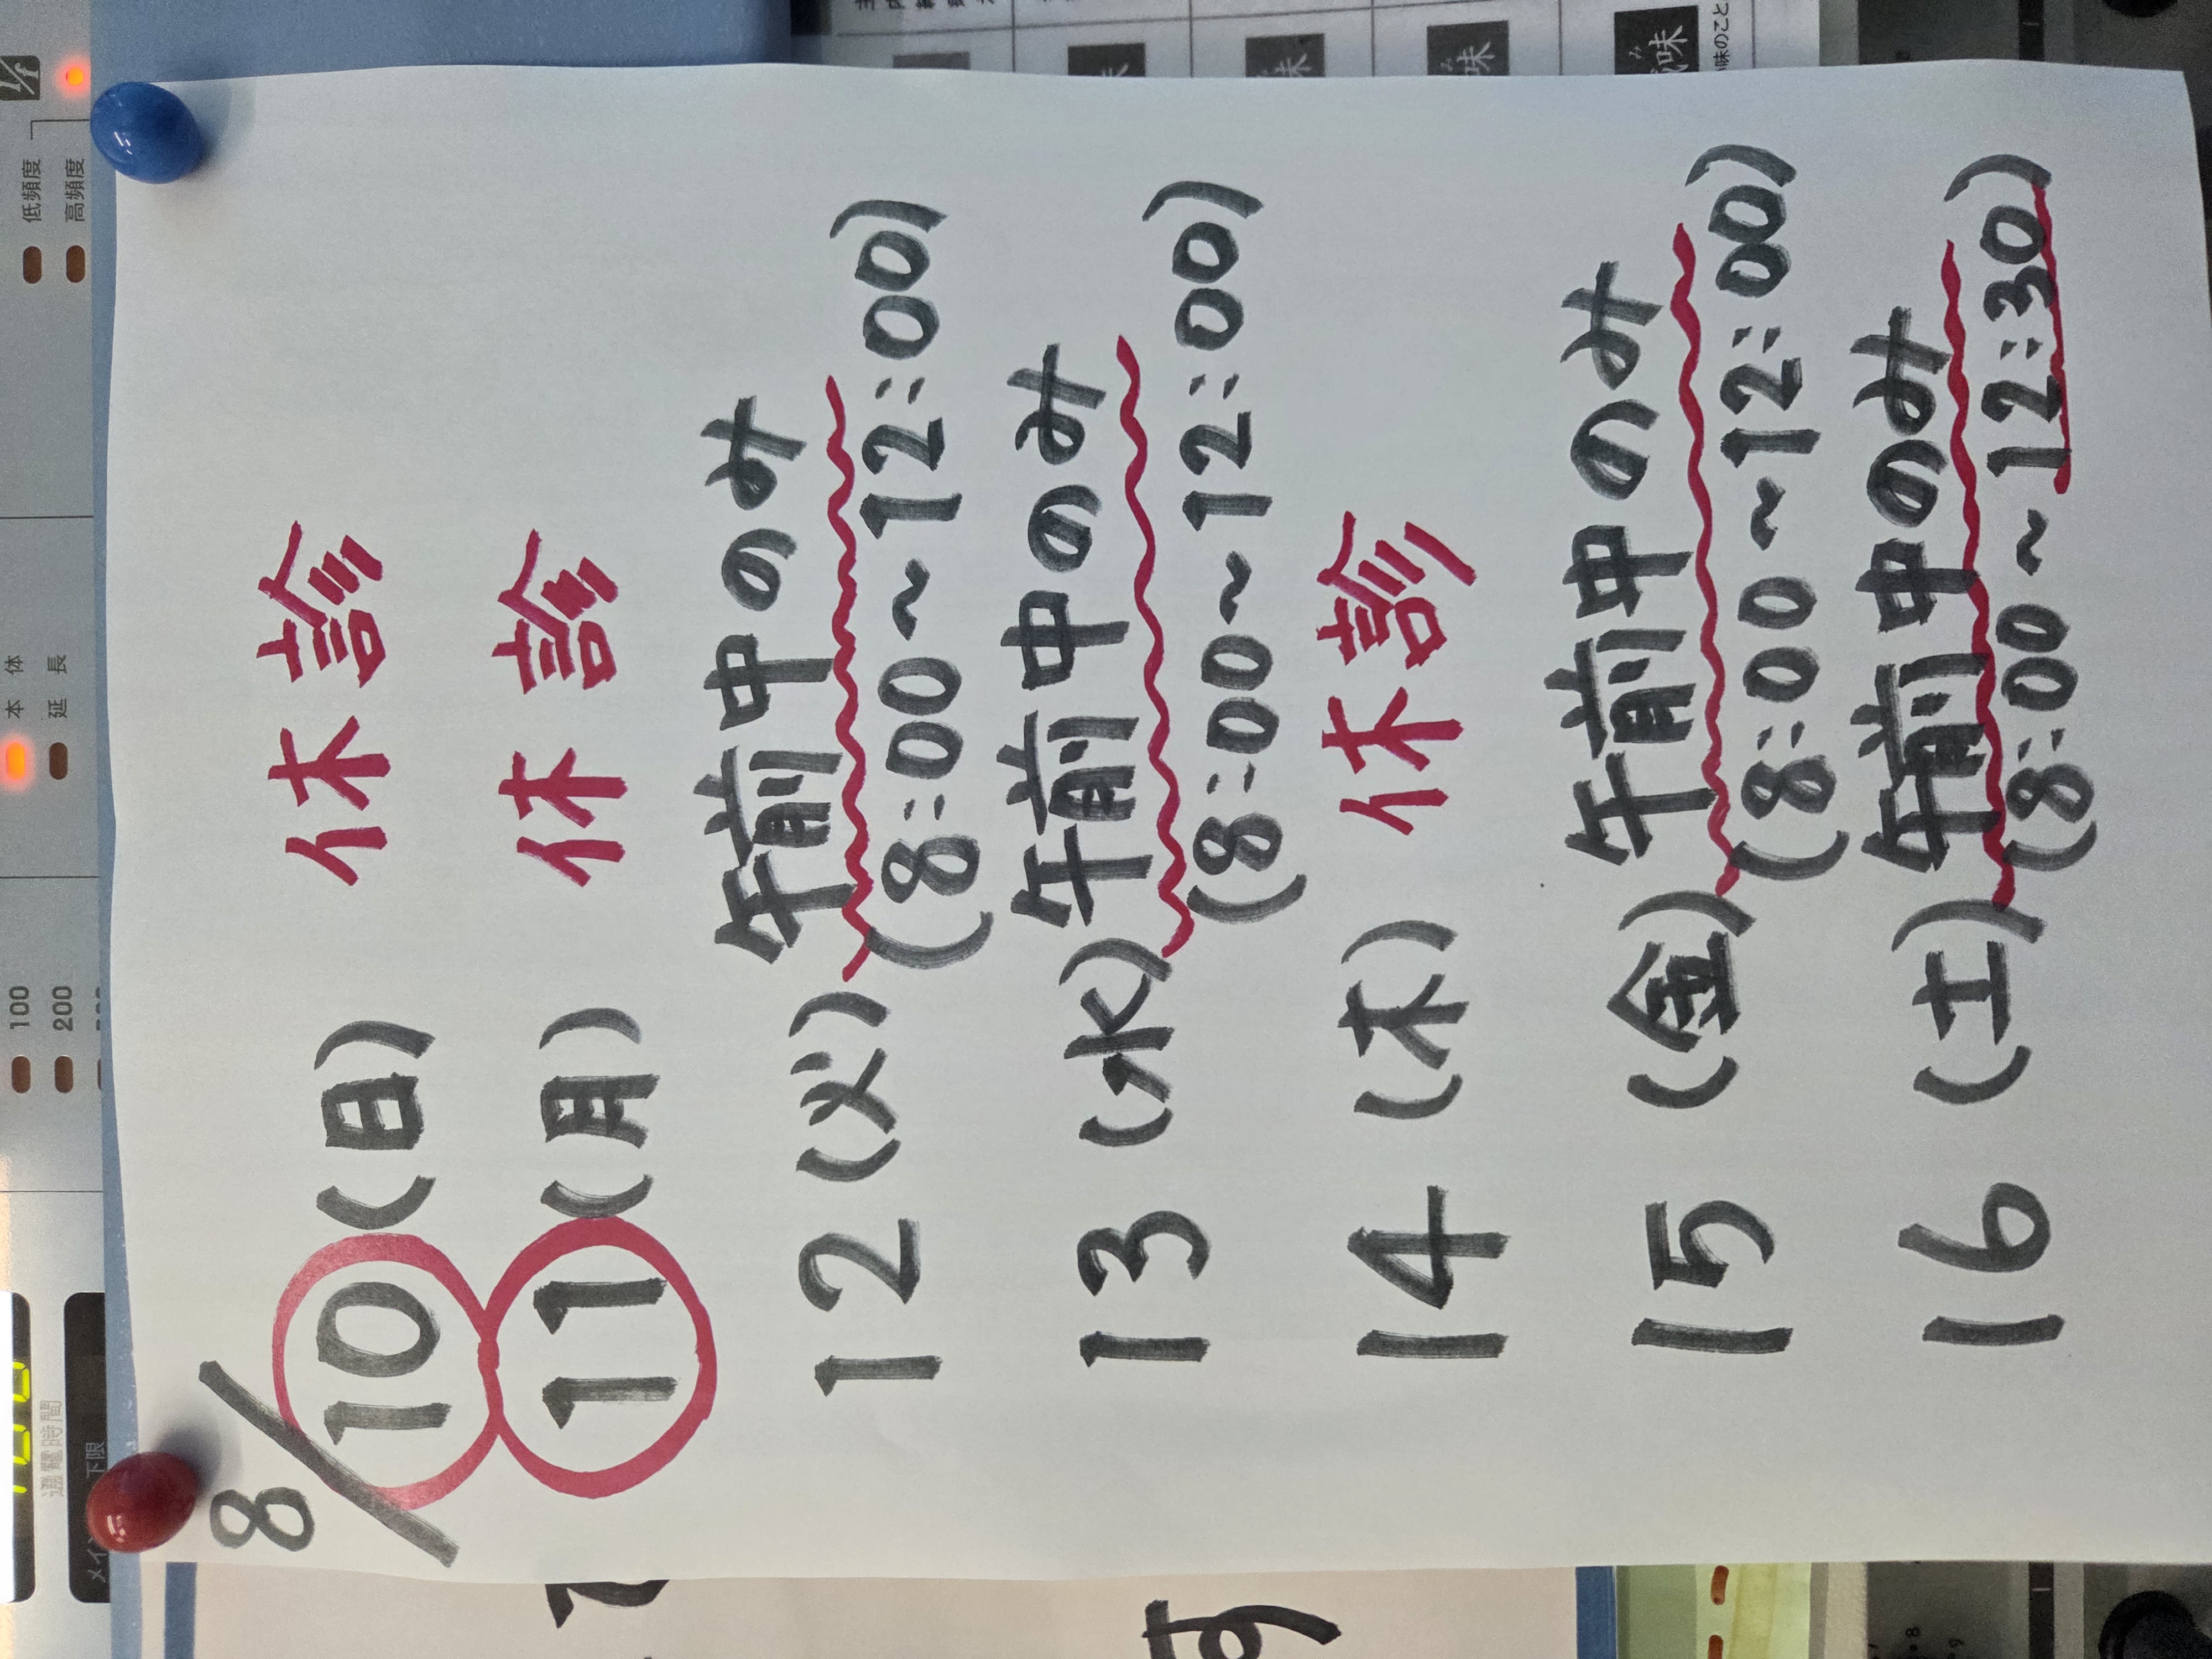 8/10(日) 休診
11(月) 休診
12(火) 午前中のみ
(8:00~12:00)
13(水) 午前中のみ
(8:00~12:00)
14(木) 休診
15(金) 午前中のみ
(8:00~12:00)
16(土) 午前中のみ
(8:00~12:30)
1/f
低頻度
高頻度
本体
延長
100
200
通電時間
下限
味
味
味
味のこと
す